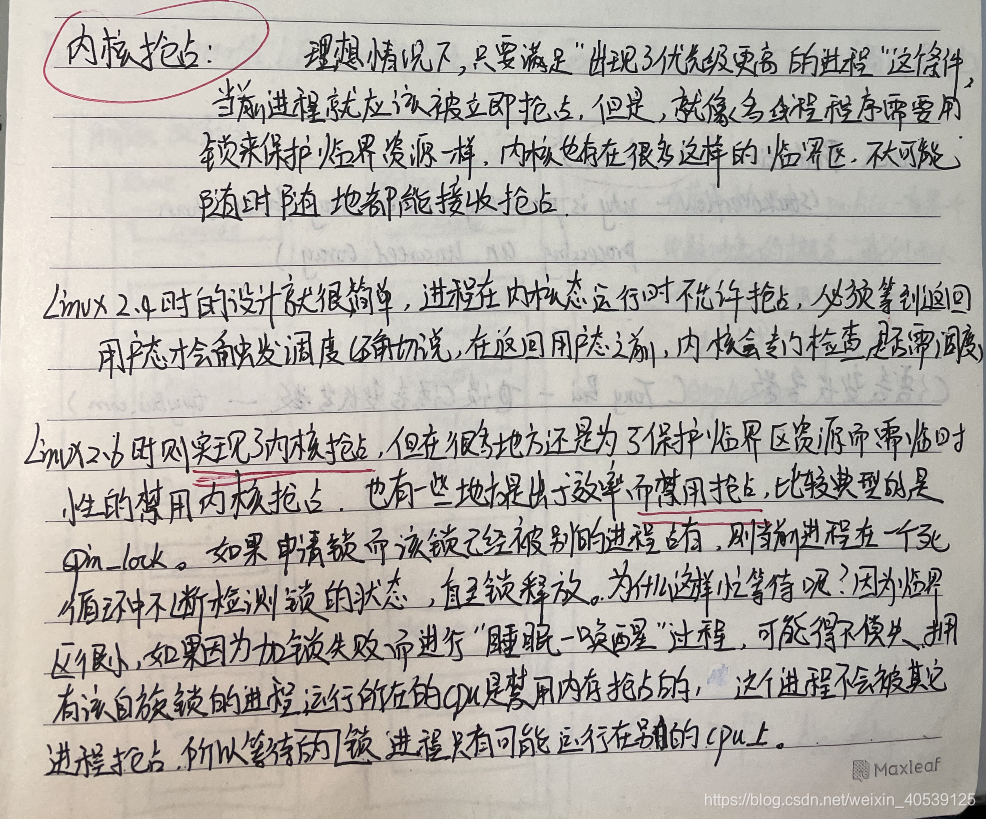 内核抢占: 理想情况下,只要满足"出现了优先级更高的进程"这条件,
当前进程就应该被立即抢占.但是,就像多线程程序需要用
锁来保护临界资源一样,内核也存在很多这样的临界区.不大可能
随时随地都能接收抢占.
Linux 2.4时的设计就很简单,进程在内核态运行时不允许抢占,必须等到返回
用户态才会触发调度(确切说,在返回用户态之前,内核会专门检查是否需调度)
Linux2.6时则实现了内核抢占,但在很多地方还是为了保护临界区资源而需临时
性的禁用内核抢占.也有一些地方是出于效率而禁用抢占,比较典型的是
spin_lock。如果申请锁而该锁已经被别的进程占有,则当前进程在一个死
循环中不断检测锁的状态,直至锁释放。为什么这样忙等待呢?因为临界
区很小,如果因为加锁失败而进行"睡眠—唤醒"过程,可能得不偿失.拥
有该自旋锁的进程运行所在的cpu是禁用内存抢占的,这个进程不会被其它
进程抢占.所以等待的锁进程只有可能运行在别的cpu上。
Maxleaf
https://blog.csdn.net/weixin_40539125